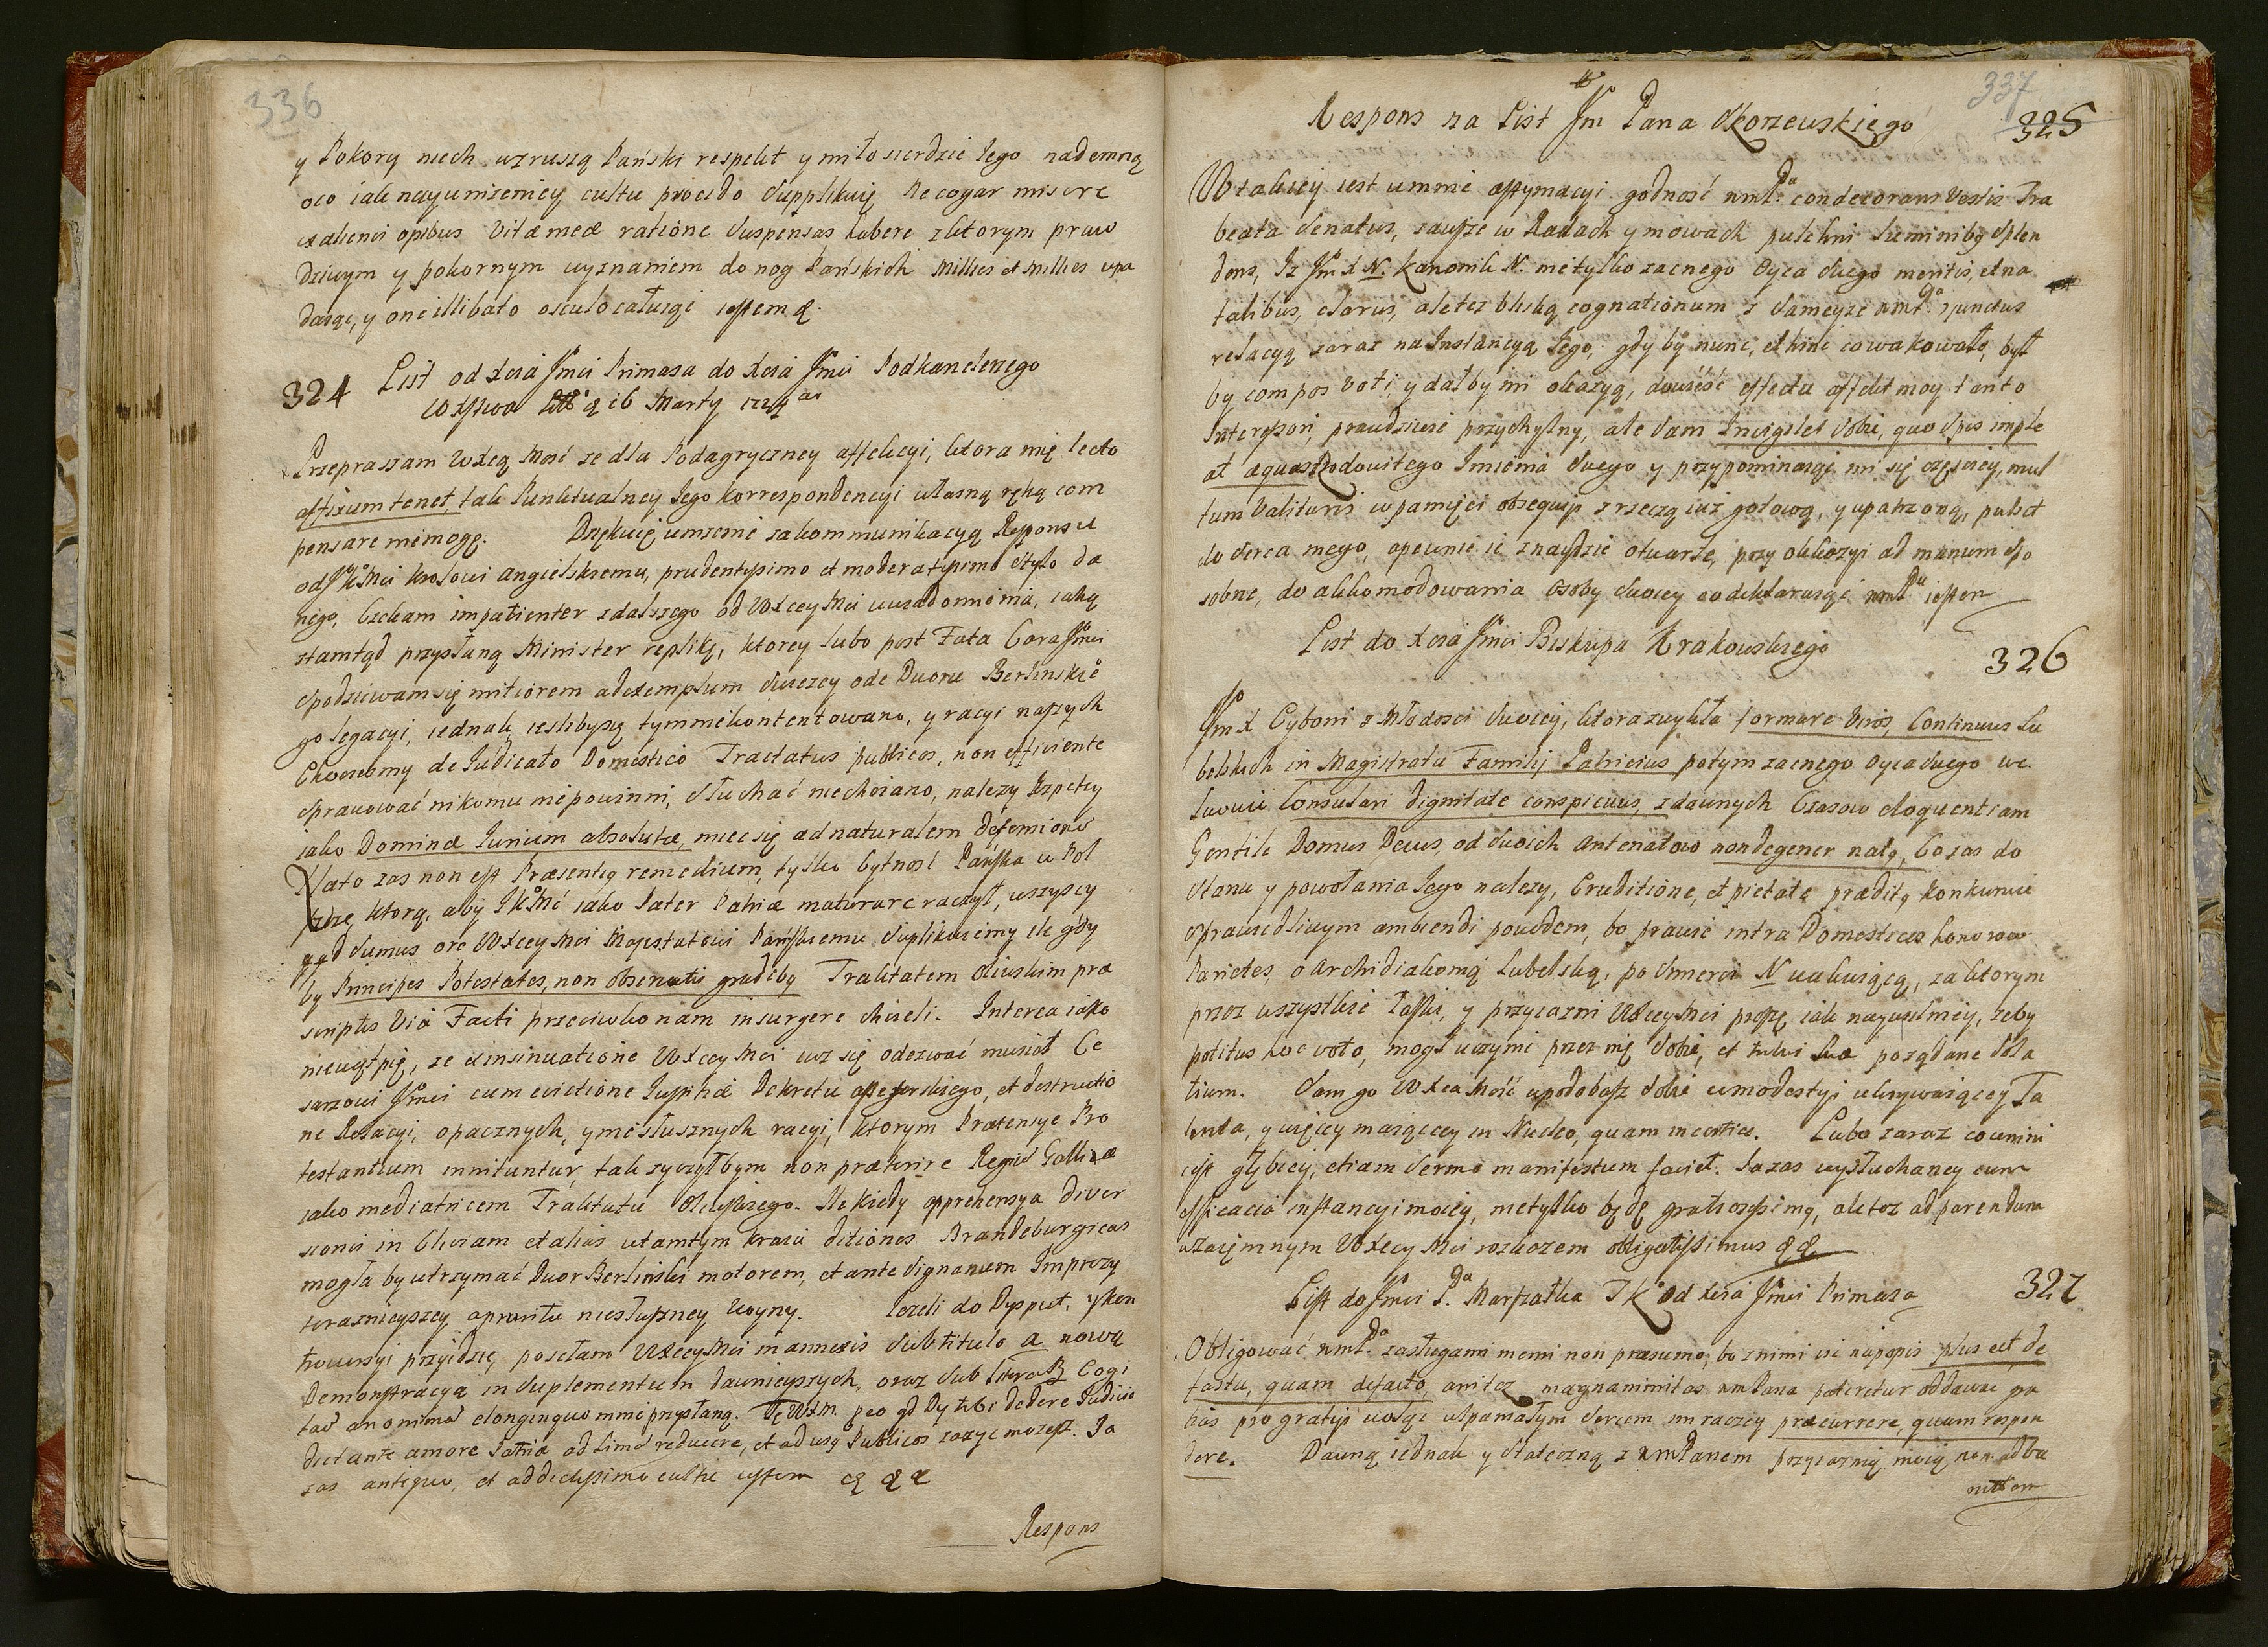 336
y Pokory niech wzruszą Pański respekt y miłosierdzie Jego nademną
oco iak nayunizeniey cultu procido Supplikuię Ne cogar misere
ex alienis opibus Vitæ meæ ratione Suspensas habere z ktorym praw
dziwym y pokornym wyznaniem do nog Pańskich Millies et Millies upa
daiąc, y one illibato osculo całuiąc iestem q.
324 List od Xcia Jmci Primasa do Xcia Jmci Podkanclerzego
WXstwa 16 Marty
Przepraszam WXcą Mość ze dla Podagryczney affekcyi, ktora mię lecto
affixum tenet, tak Punktualney Jego korrespondencyi własną ręką com
pensare niemogę. Dziękuię umzenie zakommunikacyą Responsu
od JKMci krolowi angielskiemu, prudentissimo et moderatissimo stylo da
nego, Czekam impatienter z dalszego od WXcey Mci uwiadomienia, iaką
ztamtąd przysłaną Minister replikę, ktorey lubo post Fata Cara Jmci
spodziewam się mitiorem ad exemplum swiezey ode Dworu Berlinskie
go legacyi, iednak iesliby się tym niekontentowano, y racyi naszych
Chociesmy de Judicato Domestico Tractatus publicos, non efficiente
sprawować nikomu niepowinni, słuchać niechciano, nalezy Rzpltey
iako Dominæ Jurium absolutæ, mieć się ad naturalem Defensionem
Na to zas non est Præsentiq remedium, tylko bytność Pańska w Pol
szcze ktorą, aby JKMć iako Pater Patriæ maturare raczył, wszyscy
qqd sumus ore WXcey Mci Majestatowi Pańskiemu Suplikuiemy ile gdy
by Principes Potestates, non observatis gradibq Traktatem Oliwskim præ
scriptis Viâ Facti przeciwko nam insurgere chcieli. Interea iako
niewątpię, ze ex insinuatione WXcey Mci iuz się odezwać musiał Ce
sarzowi Jmci cum evictione Justitiæ Dekretu assessorskiego, et destructio
ne Relacyi, opacznych, y niesłusznych racyi, ktorym Prætensye Pro
testantium innituntur, tak zyczyłbym non præterire Regno Galliæ
iako mediatricem Traktatu Oliwskiego. Ile kiedy apprehensya diver
sionis in Cliviam et alias w tamtym kraiu ditiones Brandeburgicas
mogła by utrzymać Dwor Berlinski motorem, et ante signanum Imprezy
teraznieyszey aprawie niesłuszney Woyny. Jezeli do Dysput, y kon
trowersyi przyidzie, posełam WXcey Mci in annexis Sub titulo a nową
Demonstracyą in Suplementum dawnieyszych, oraz Sub litera B Cogi
ta anonima elonginquo mnie przysłaną. pro qd Dy tibi dedere Judicio
dictante amore Patriæ ad limæ reducere, et ad usq Publicos zazyć mozesz. Ja
zas antiquo, et addictissimo cultu iestem
Respons
337
Respons na List Jm Pana Skorzewskiego 325
W takiey iest umnie estymacyi godność wmPa condecorans Vestis Tra
beata Senatus, zawsze w Radach y mowach pulchri luminibq splen
dens, Iz Jm X N. Kanonik N. nietylko zacnego Oyca swego meritis, et na
talibus, clarus, ale tez bliską cognationum z sameyze wmPa junctus
relacyą zaraz na Instancyą Jego, gdy by nunc, et hinc co wakowało, był
by compos voti, y dał by mi okazyą, dowieść effectu affekt moy tanto
Intercessori, prawdziwie przychylny, ale sam Invigilet sobie, quo spes imple
at æquas Rodowitego Imienia swego y przypominaiąc mi się częściey, mul
tum Valituris w pamięci obsequijs z rzeczą iuz gotową, y upatrzoną, pulset
do serca mego, a pewnie ie znaydzie otwarte, przy okkazyi ad manum spo
sobne, do akkomodowania Osoby swoiey co deklaruiąc wmPa iestem
List do Xcia Jmci Biskupa Krakowskiego 326
Jm X Cyboni z Młodości swoiey, ktora zwykła formare Viros, Continuus Lu
belskich in Magistratu Familij Patricius potym zacnego Oyca swego we
Lwowie Consulari dignitate conspicuus, z dawnych Czasow eloquentiam
Gentili Domus Decus, od swoich Antenatow non degener natq, Co zas do
Stanu y powołania Jego nalezy, Eruditione, et pietate præditq konkuruie
sprawiedliwym ambiendi powodem, bo prawie intra Domesticos honorow
Parietes, o Archidiakonią Lubelską, po Smierci N wakuiącą, za ktorym
przez wszystkie łaski, y przyiazni WXcey Mci proszę iak nayusilniey, zeby
potitus hoc voto, mogł uczynić przez mię sobie, et tului suæ pożądane sola
tium. Sam go WXca Mość upodobasz sobie w modestyi ukrywaiącey Ta
lenta, y więcey maiącey in Nucleo, quam in cortice. Lubo zaraz co w nim
iest głębiey, etiam sermo manifestum faciet. Ja zas wysłuchaney cum
efficacia instancyi moiey, nietylko będę gratiosissimq, ale tez ad parendum
wzaiemnym WXcey Mci rozkazem obligatissimus qq
List do Jmci Pa Marszałka JK od Xcia Jmci Primasa 327
Obligować wmPa zasługami memi non præsumo, bo z nimi isć na popis plus est de
fastu, quam defacto, ani tez magnanimitas wmPana pateretur oddawać pa
bas pro gratijs woląc wspaniałym sercem im raczey præcurrere, quam respon
dere. Dawną iednak y stateczną z wmPanem przyiaznią moię non adba
nitam